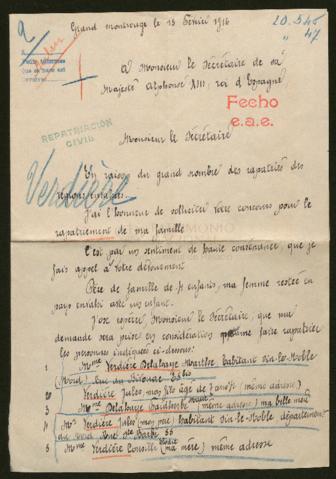 Grand montrouge le 15 Février 1916
20.545
47
A Monsieur le Secrétaire de sa
Majesté Alphonse XIII, roi d'Espagne
Fecho
e.a.e.
REPATRIACIÓN
CIVIL
Verdière
Monsieur le Secrétaire
En raison du grand nombre des rapatriés des
régions envahies.
J'ai l'honneur de solliciter votre concours pour le
rapatriement de ma famille
C'est par un sentiment de haute convenance, que je
fais appel à votre dévouement
Père de famille de enfants, ma femme restée en
pays envahi avec un enfant.
J'ose espérer, Monsieur le Secrétaire, que ma
demande sera prise en considération faire rapatrier
les personnes indiquées ci-dessous:
1 Mme Verdière Delahaye Marthe habitant Sin-le-Noble
(Nord) rue du bis
20 Verdière Jules mon fils âgé de (même adresse)
3 Mme Delahaye (même adresse) ma belle mère
4 Mr Verdière Jules (mon père) habitant Sin-le-Noble département
du Nord Rue Ste Barbe 55
5 Mme Verdière (ma mère) même adresse